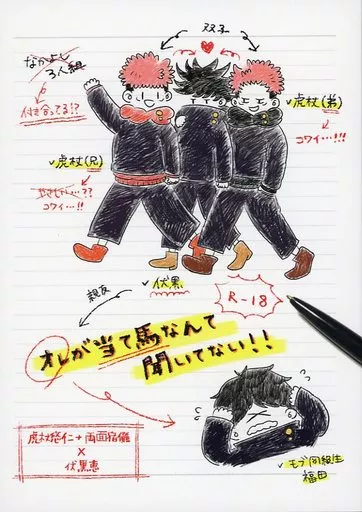 双子
なかよし
3人組
付き合ってる!?
虎杖(弟)
コワイ…!!
虎杖(兄)
やさしい…??
コワイ…!!
伏黒
親友
R-18
オレが当て馬なんて
聞いてない!!
虎杖悠仁+両面宿儺
×
伏黒恵
モブ同級生
福田